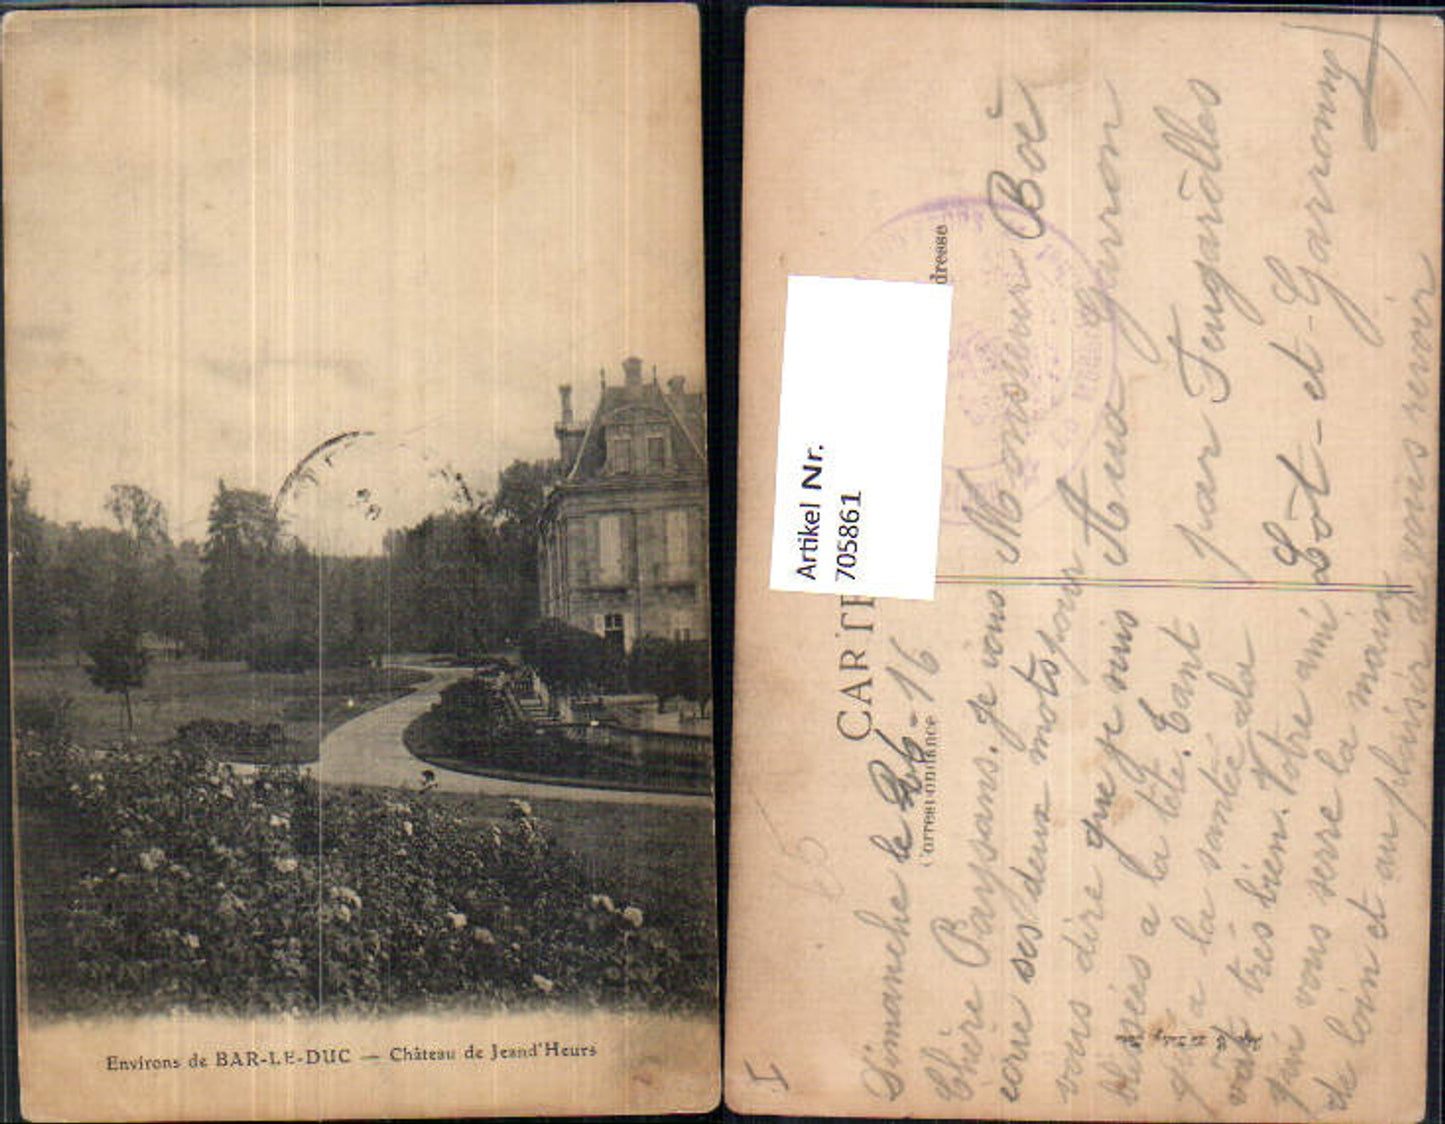 Environs de BAR-LE-DUC — Château de Jeand'Heurs
Artikel Nr.
705861
CARTE
Correspondance
dresse
Dimanche le 16
Chère Paysans. Je vous
ecrire ses deux mots pour
vous dire que je suis
blessées a la tête. Tant
qu'a la santée cela
vat très bien. Votre ami
qui vous serre la main
de loin et au plaisir de vous revoir
Monsieur Boé
Garron
par Feugarolles
Lot-et-Garronne